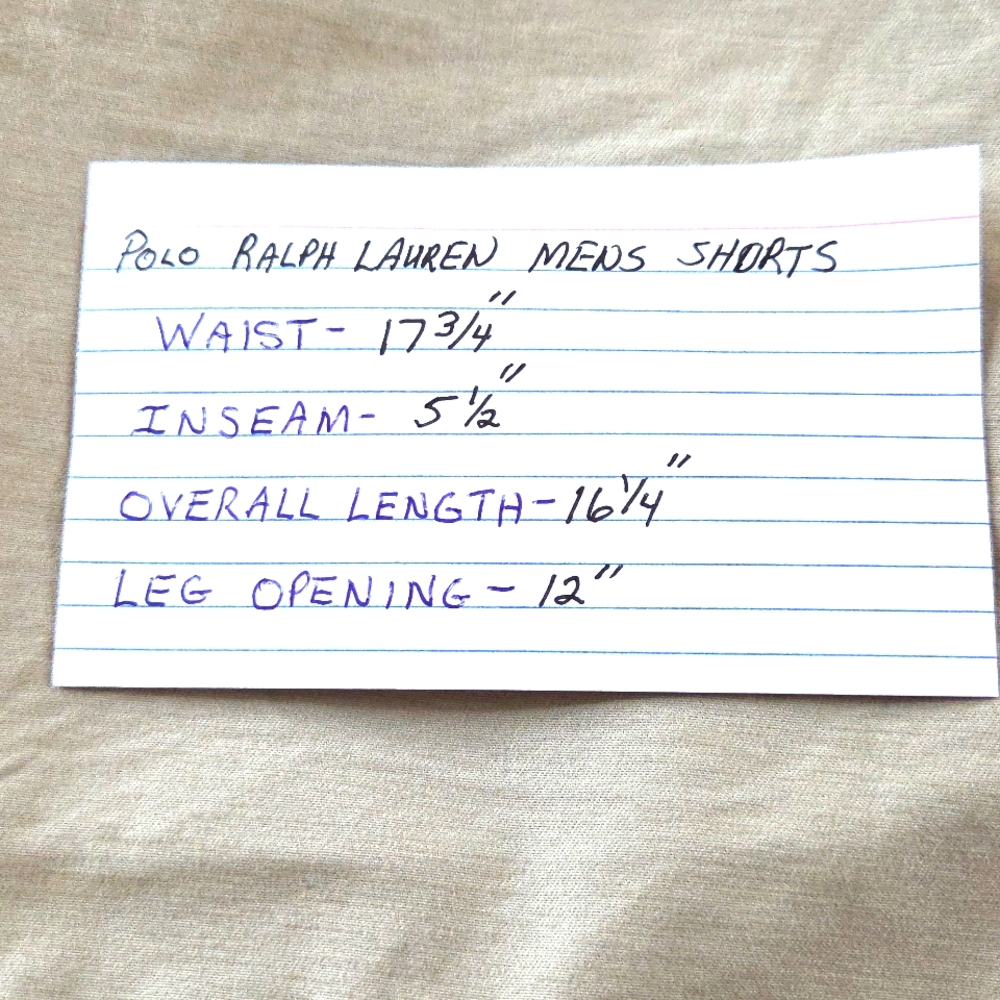 POLO RALPH LAUREN MENS SHORTS
WAIST- 17 3/4"
INSEAM- 5 1/2"
OVERALL LENGTH- 16 1/4"
LEG OPENING - 12"